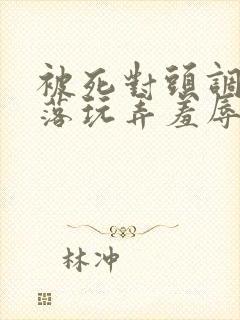 被死對頭調
落玩弄羞辱
林冲